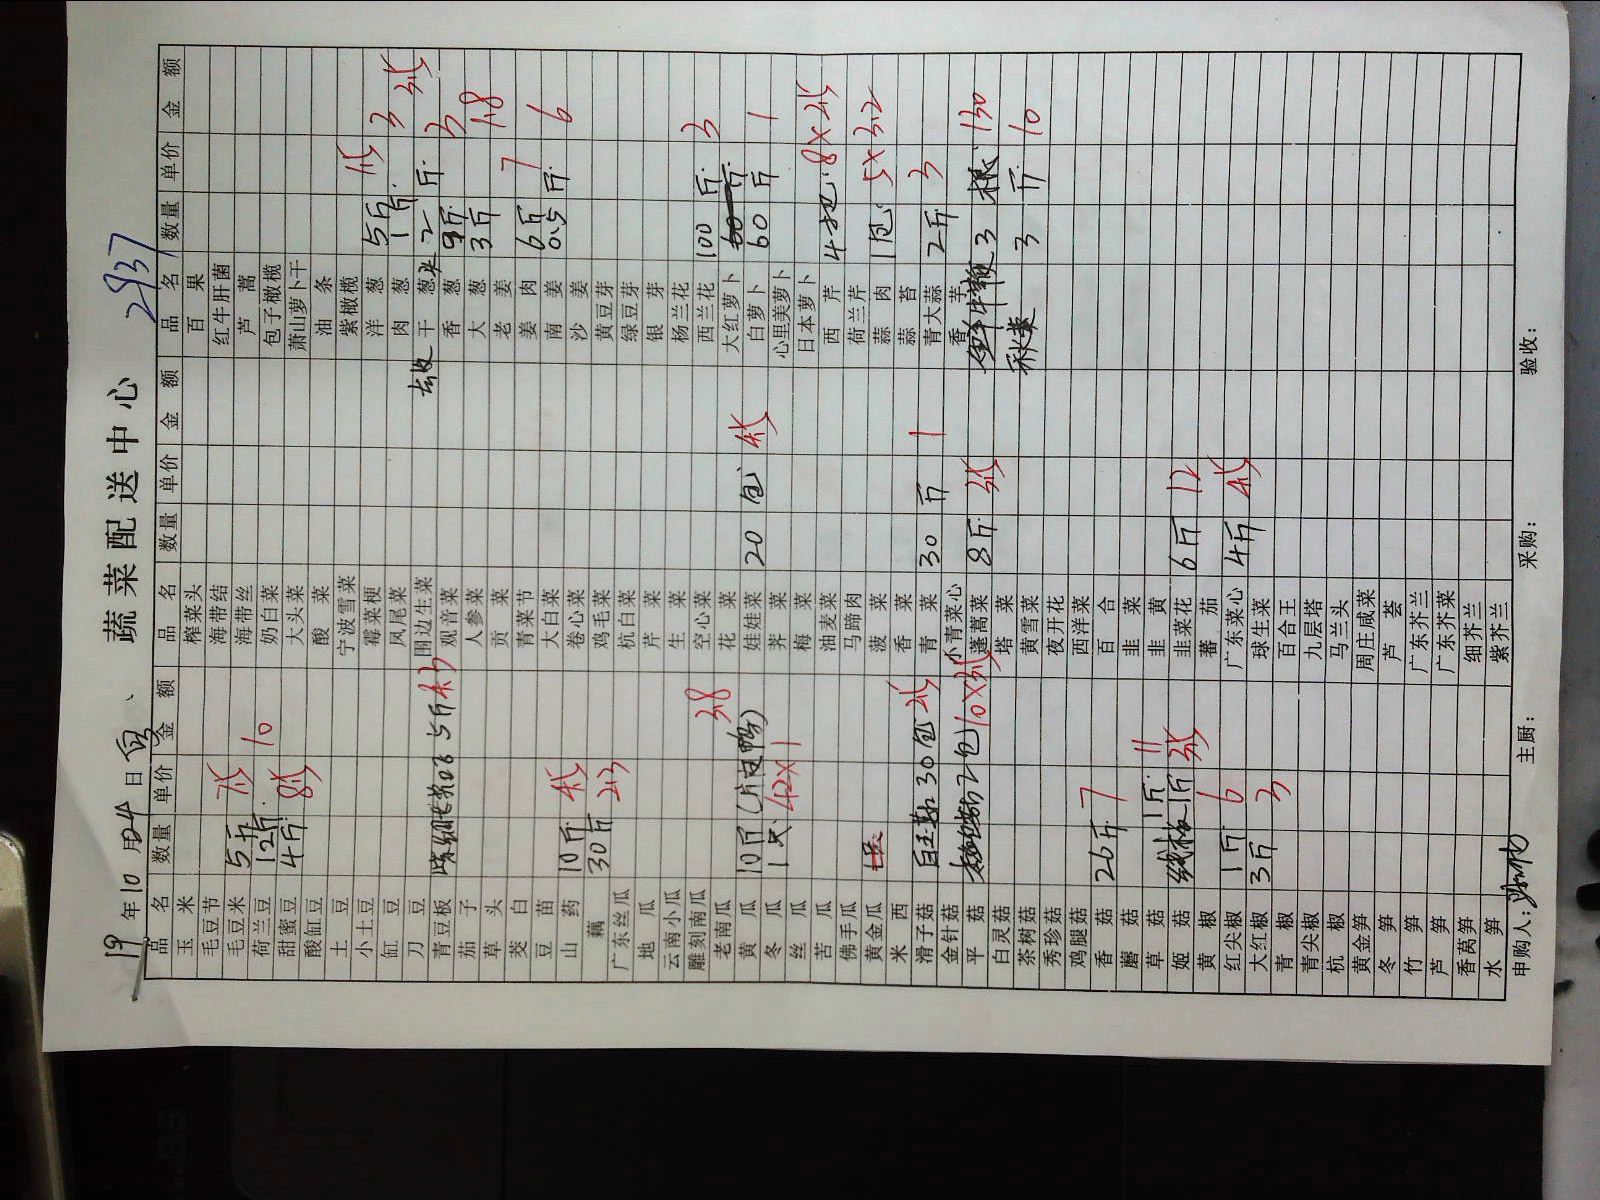 蔬菜配送中心 2937
19年10月24日
品名 数量 单价 金额 品名 数量 单价 金额 品名 数量 单价 金额
玉米 榨菜头 百果
毛豆节 海带结 红牛肝菌
毛豆米 5斤 7.5 海带丝 芦蒿
荷兰豆 12斤 10 奶白菜 包子橄榄
甜蜜豆 4斤 8.5 大头菜 萧山萝卜干
酸缸豆 酸菜 油条
土豆 宁波雪菜 紫橄榄
小土豆 霉菜梗 洋葱 5斤 1.5
缸豆 凤尾菜 肉葱 1斤 3
刀豆 围边生菜 干葱 2斤 3.5
青豆板 5斤 观音菜 香葱 9斤 3
茄子 人参菜 大葱 3斤 1.8
草头 贡菜 老姜
茭白 青菜节 姜肉 6斤 7
豆苗 大白菜 南姜 0.5斤 6
山药 10斤 4.5 卷心菜 沙姜
藕 30斤 2.3 鸡毛菜 黄豆芽
广东丝瓜 杭白菜 绿豆芽
地瓜 芹菜 银芽
云南小瓜 生菜 杨兰花
雕刻南瓜 空心菜 西兰花 100斤 3
老南瓜 3.8 花菜 大红萝卜
黄瓜 10斤 娃娃菜 20包 4.5 白萝卜 60斤 1
冬瓜 1只 42×1 荠菜 心里美萝卜
丝瓜 梅菜 日本萝卜
苦瓜 油麦菜 西芹 4把 8×2.5
佛手瓜 马蹄肉 荷兰芹
黄金瓜 菠菜 蒜肉 1包 5×3.2
米西 香菜 蒜苔
滑子菇 白玉菇 30包 2.5 青菜 30斤 1 青大蒜 2斤 3
金针菇 小青菜心 香芋
平菇 2包 10×3.5 蓬蒿菜 8斤 3.5 3根 130
白灵菇 塔菜 秋葵 3斤 10
茶树菇 黄雪菜
秀珍菇 夜开花
鸡腿菇 西洋菜
香菇 26斤 7 百合
蘑菇 韭菜
草菇 1斤 11 韭黄
姬菇 1斤 3.5 韭菜花 6斤 12
黄椒 蕃茄
红尖椒 1斤 6 广东菜心 4斤 4.5
大红椒 3斤 3 球生菜
青椒 百合王
青尖椒 九层塔
杭椒 马兰头
黄金笋 周庄咸菜
冬笋 芦荟
竹笋 广东芥兰
芦笋 广东芥菜
香莴笋 细芥兰
水笋 紫芥兰
申购人： 主厨： 采购： 验收：